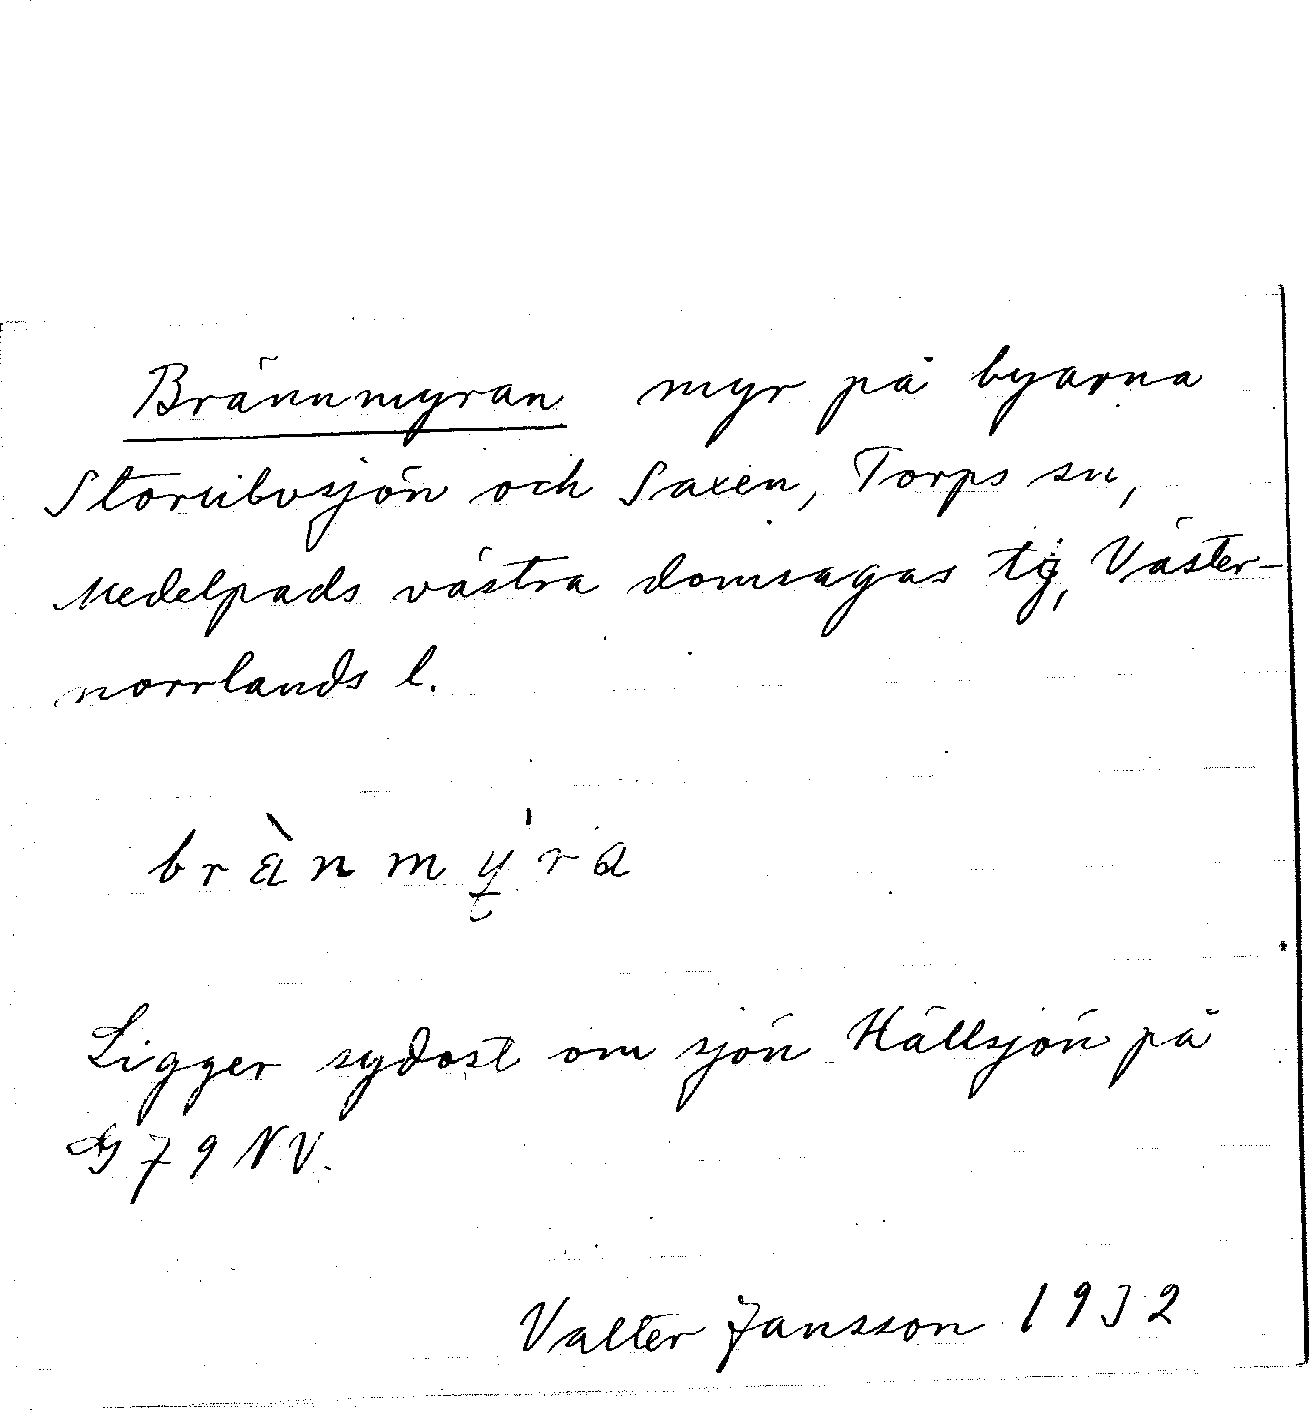 Brännmyran myr på byarna
Storulvsjön och Saxen, Torps sn,
Medelpads västra domsagas tg, Väster-
norrlands l.
Ligger sydost om sjön Hällsjön på
G 79 NV.
Valter Jansson 1932